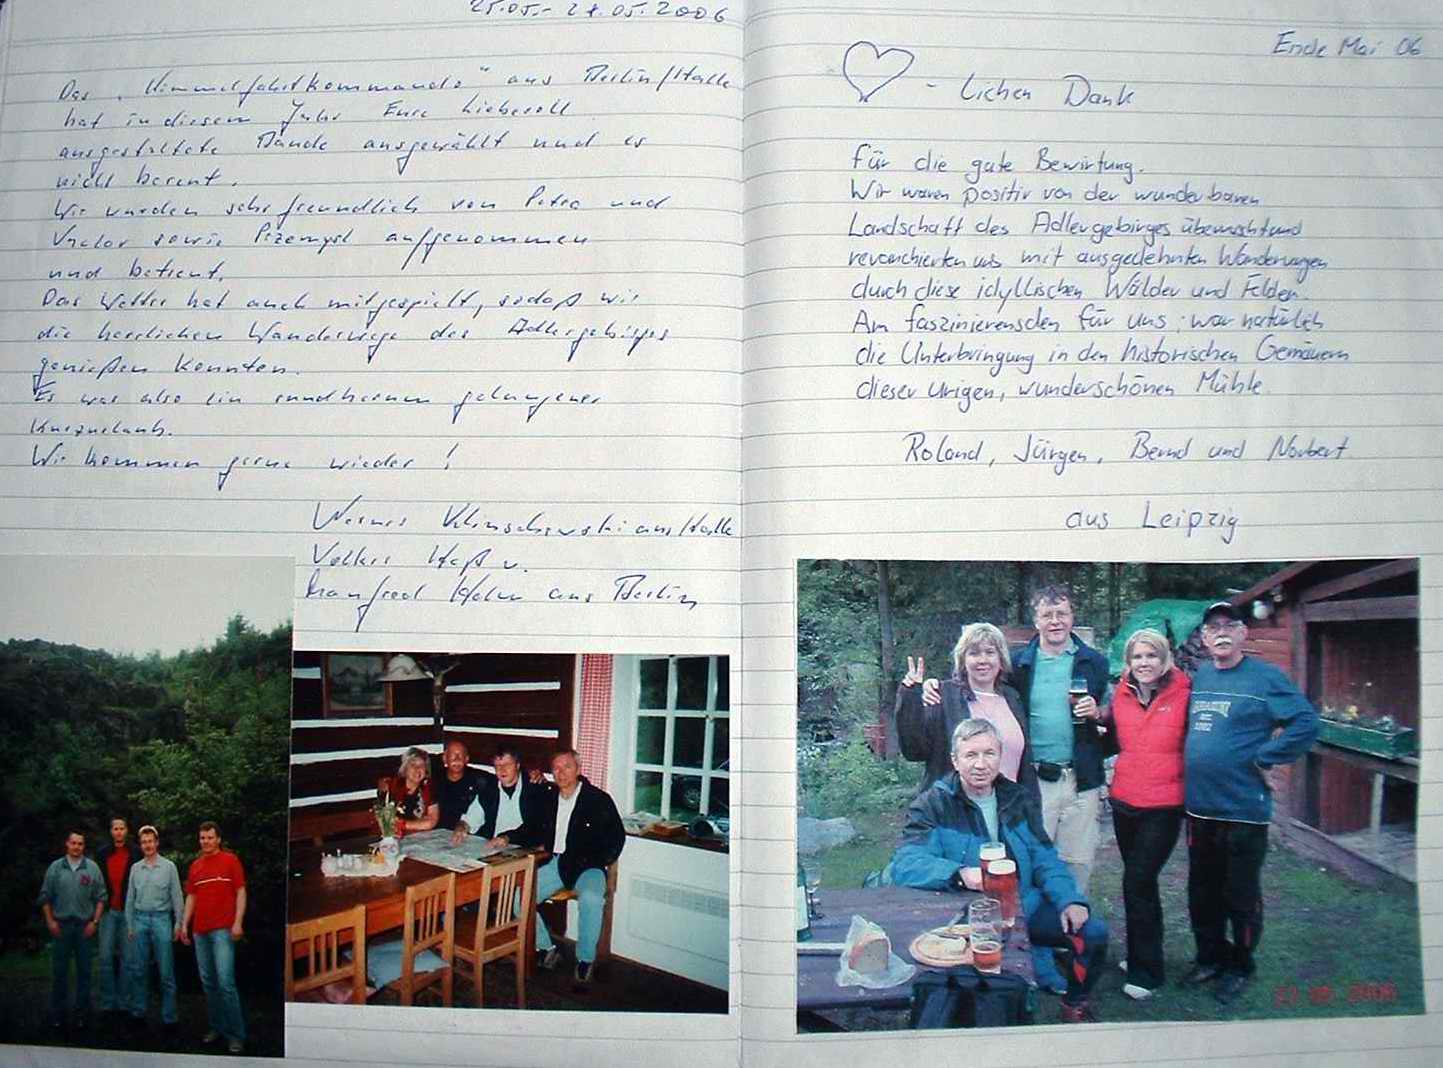 25.05.- 28.05.2006
Das "Himmelfahrtkommando" aus Berlin/Halle
hat in diesem Jahr Eure liebevoll
ausgestaltete Baude ausgewählt und es
nicht bereut.
Wir wurden sehr freundlich von Petra und
sowie Pizemysl aufgenommen
und betreut.
Das Wetter hat auch mitgespielt, sodaß wir
die herrlichen Wanderwege des Adlergebirges
genießen konnten.
Es was also ein rundherum gelungener
Kurzurlaub.
Wir kommen gerne wieder!
Werner aus Halle
Volker Heß u.
Manfred Hahn aus Berlin
Ende Mai 06
- lichen Dank
für die gute Bewirtung.
Wir waren positiv von der wunderbaren
Landschaft des Adlergebirges überrascht und
revanchierten uns mit ausgedehnten Wanderungen
durch diese idyllischen Wälder und Felder.
Am faszinierensden für uns, war natürlich
die Unterbringung in den historischen Gemäuern
dieser urigen, wunderschönen Mühle.
Roland, Jürgen, Bernd und Norbert
aus Leipzig
2006